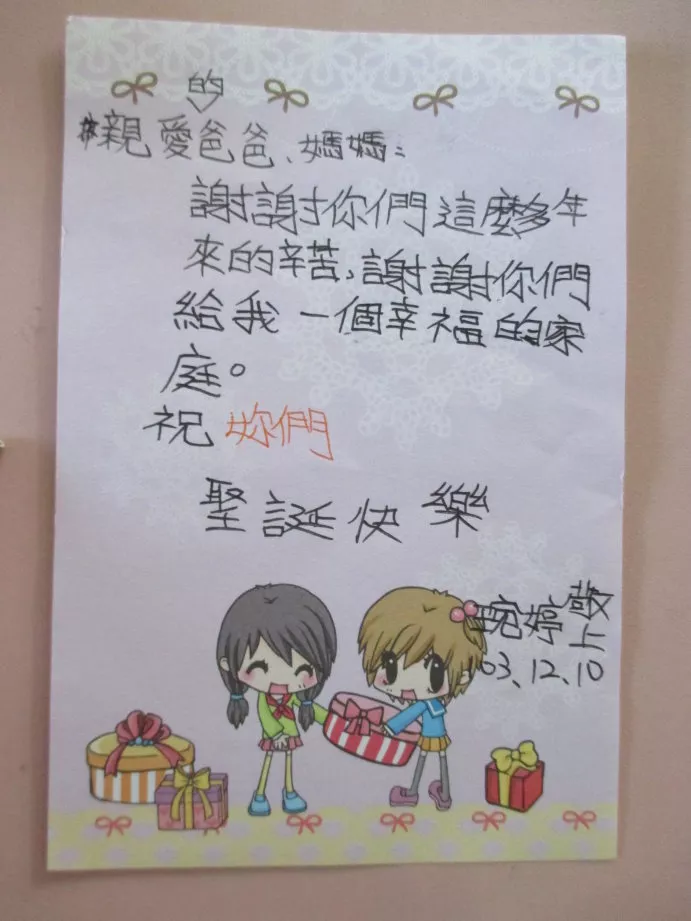 親愛的爸爸、媽媽:
謝謝你們這麼多年
來的辛苦,謝謝你們
給我一個幸福的家
庭。
祝妳們
聖誕快樂
婉婷敬上
03.12.10